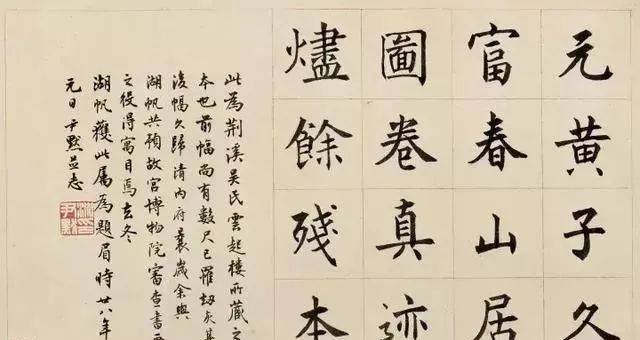 元黃子久
富春山居
圖卷真迹
燼餘殘本
此為荊溪吳氏雲起樓所藏之
本也前幅尚有數尺已罹劫灰其
後幅久歸清內府曩歲余與
湖帆共預故宮博物院審查書
之役得寓目焉去冬
湖帆獲此屬為題眉時廿八年
元日尹默並志